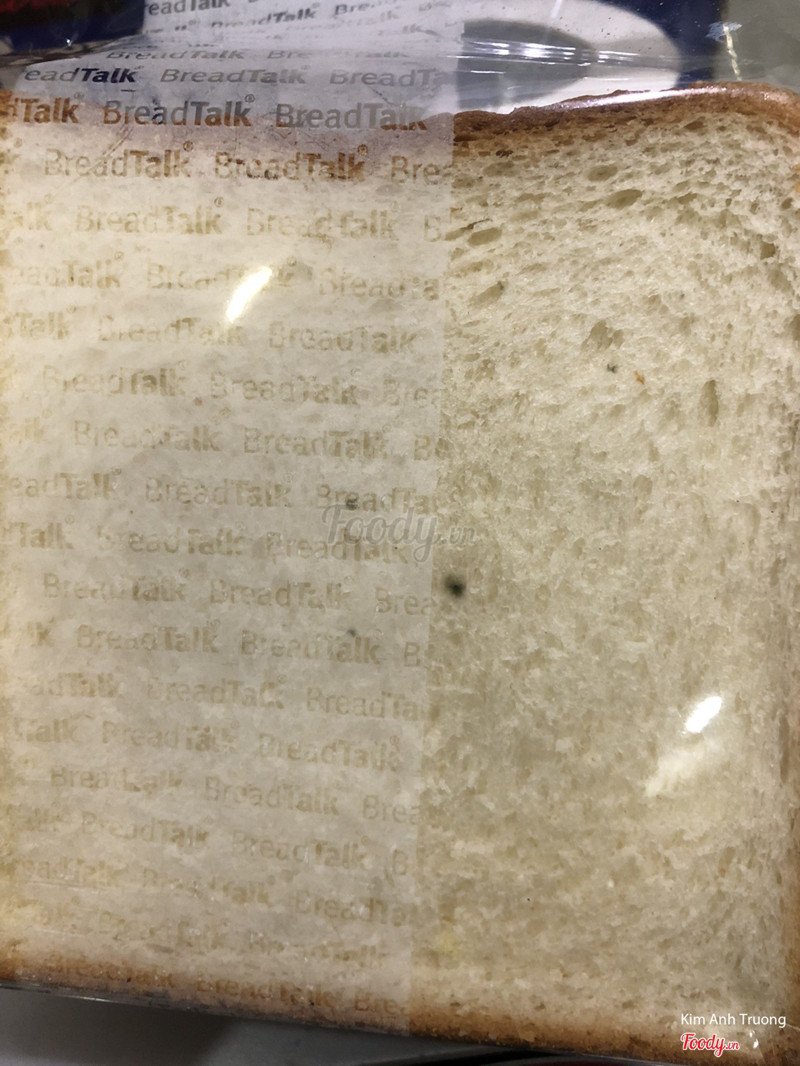 readTalk BreadTalk
BreadTalk BreadTalk
eadTalk BreadTalk BreadTa
dTalk® BreadTalk® BreadTalk
BreadTalk® BreadTalk® Bre
alk BreadTalk® BreadTalk B
eadTalk BreadTalk BreadTa
Talk BreadTalk BreadTalk
BreadTalk BreadTalk Bre
BreadTalk BreadTalk Br
eadTalk BreadTalk BreadTa
Talk BreadTalk BreadTalk
Foody.vn
BreadTalk BreadTalk Brea
lk BreadTalk BreadTalk B
eadTalk BreadTalk BreadTa
Talk BreadTalk BreadTalk
BreadTalk BreadTalk Brea
BreadTalk BreadTalk B
eadTalk BreadTalk BreadTa
Talk BreadTalk
BreadTalk Bre
Kim Anh Truong
Foody.vn